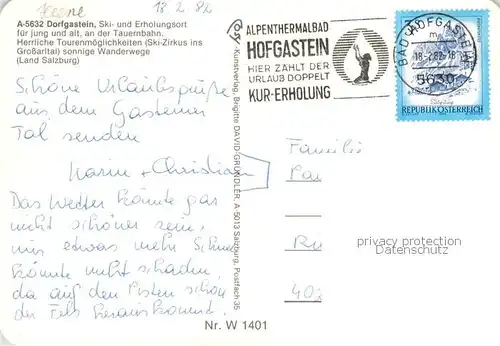 18.2.82
A-5632 Dorfgastein, Ski- und Erholungsort
für jung und alt, an der Tauernbahn.
Herrliche Tourenmöglichkeiten (Ski-Zirkus ins
Großarltal) sonnige Wanderwege
(Land Salzburg)
Schöne Urlaubsgrüße
aus dem Gasteiner
Tal senden
Karin + Christian
Das Wetter könnte gar
nicht schöner sein,
nur etwas mehr Schnee
könnte nicht schaden,
da auf den Pisten schon
der Fels herauskommt.
Kunstverlag, Brigitte DAVID-GRÜNDLER, A-5013 Salzburg, Postfach 35
Nr. W 1401
ALPENTHERMALBAD
HOFGASTEIN
HIER ZÄHLT DER
URLAUB DOPPELT
KUR-ERHOLUNG
BAD HOFGASTEIN
5630
REPUBLIK ÖSTERREICH
Familie
privacy protection
Datenschutz